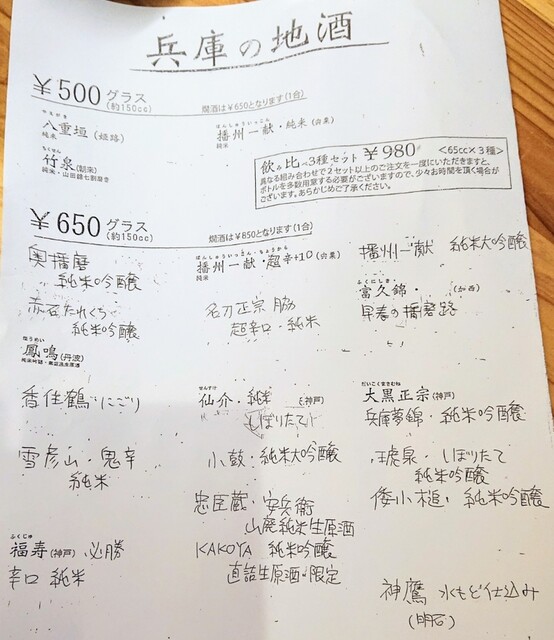 兵庫の地酒
￥500 グラス (約150cc) 燗酒は￥650となります(1合)
やえがき
八重垣 (姫路)
純米
ばんしゅういっこん
播州一献・純米 (宍粟)
純米
ちくせん
竹泉 (朝来)
純米・山田錦七割磨き
飲み比べ3種セット ￥980 <65cc×3種>
異なる組み合わせで2セット以上のご注文を一度にいただきますと、
ボトルを多数用意する必要がございますので、少々お時間を頂く場合が
ございます。あらかじめご了承ください。
￥650 グラス (約150cc) 燗酒は￥850となります(1合)
奥播磨
純米吟醸
ばんしゅういっこん・ちょうから
播州一献・超辛+10 (宍粟)
純米
播州一献 純米大吟醸
赤石たれくち
純米吟醸
名刀正宗 脇
超辛口・純米
ふくにしき
富久錦・ (加西)
早春の播磨路
ほうめい
鳳鳴 (丹波)
香住鶴・にごり
せんすけ
仙介・純米 (神戸)
しぼりたて
だいこくまさむね
大黒正宗 (神戸)
兵庫夢錦・純米吟醸
雪彦山・鬼辛
純米
小鼓・純米大吟醸
琥泉・しぼりたて
純米吟醸
忠臣蔵・安兵衛
山廃純米生原酒
倭小槌・純米吟醸
ふくじゅ
福寿 (神戸) 必勝
辛口 純米
KAKOYA 純米吟醸
直詰生原酒・限定
神鷹 水もと仕込み
(明石)